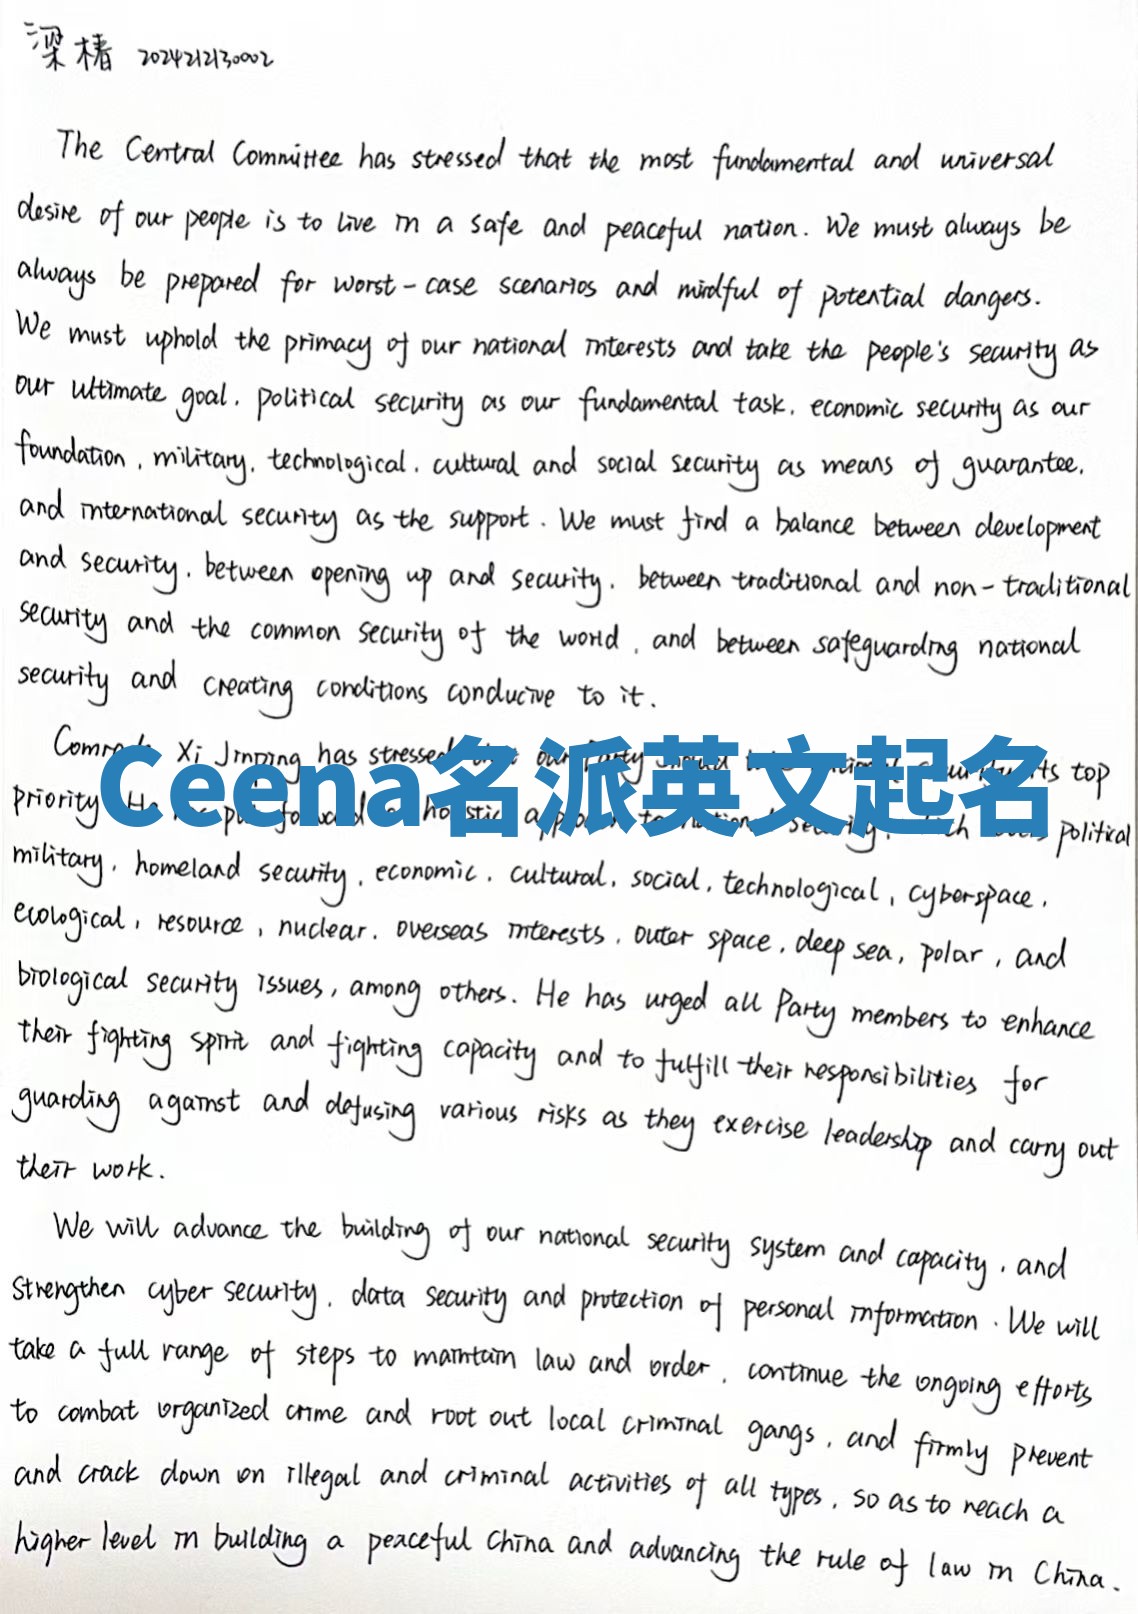 梁椿 2024212130002
The Central Committee has stressed that the most fundamental and universal
desire of our people is to live in a safe and peaceful nation. We must always be
always be prepared for worst-case scenarios and mindful of potential dangers.
We must uphold the primacy of our national interests and take the people's security as
our ultimate goal, political security as our fundamental task, economic security as our
foundation, military, technological, cultural and social security as means of guarantee,
and international security as the support. We must find a balance between development
and security, between opening up and security, between traditional and non-traditional
security and the common security of the world, and between safeguarding national
security and creating conditions conducive to it.
Xi Jinping has stressed our Party top
Ceena名派英文起名
priority. He political
military, homeland security, economic, cultural, social, technological, cyberspace,
ecological, resource, nuclear, overseas interests, outer space, deep sea, polar, and
biological security issues, among others. He has urged all Party members to enhance
their fighting spirit and fighting capacity and to fulfill their responsibilities for
guarding against and defusing various risks as they exercise leadership and carry out
their work.
We will advance the building of our national security system and capacity, and
strengthen cyber security, data security and protection of personal information. We will
take a full range of steps to maintain law and order, continue the ongoing efforts
to combat organized crime and root out local criminal gangs, and firmly prevent
and crack down on illegal and criminal activities of all types, so as to reach a
higher level in building a peaceful China and advancing the rule of law in China.